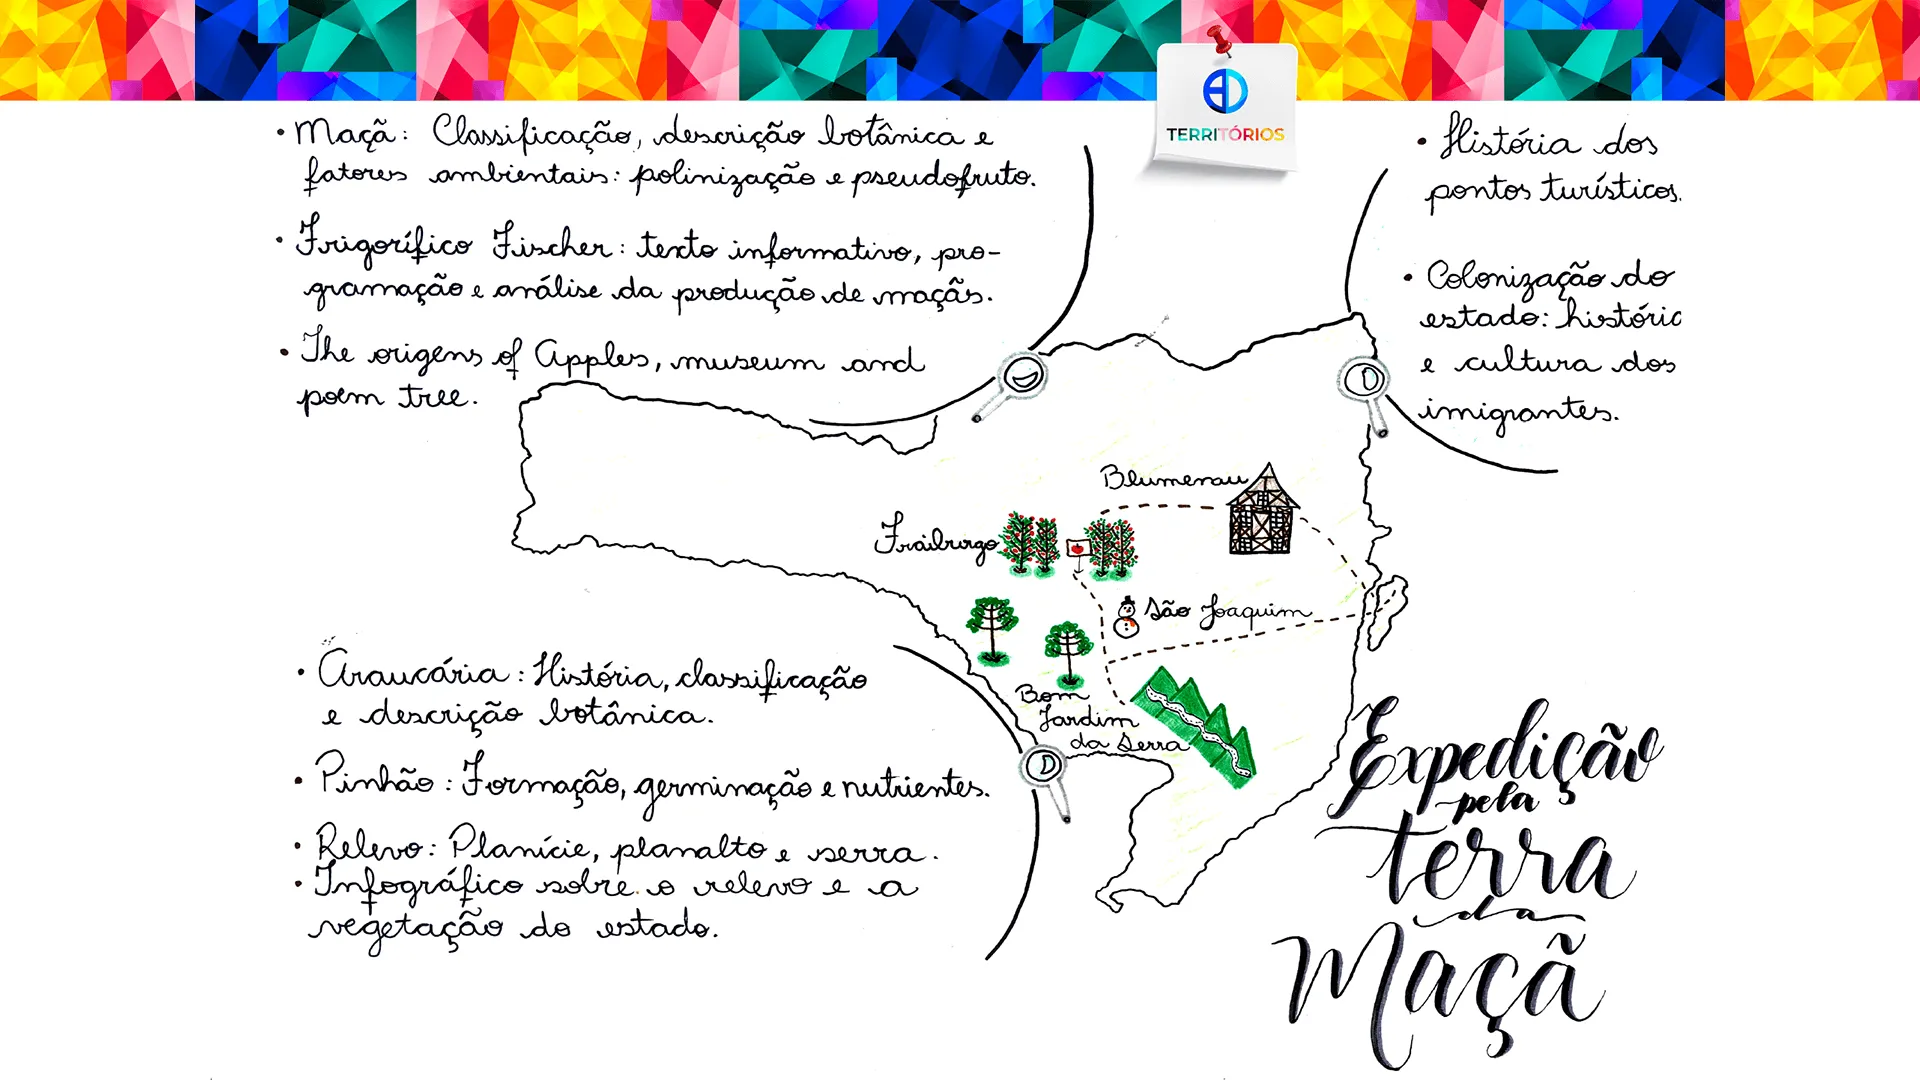 TERRITÓRIOS
• Maçã: Classificação, descrição botânica e
fatores ambientais: polinização e pseudofruto.
• Frigorífico Fischer: texto informativo, pro-
gramação e análise da produção de maçãs.
• The origens of Apples, museum and
poem tree.
• História dos
pontos turísticos.
• Colonização do
estado: história
e cultura dos
imigrantes.
Blumenau
Fraiburgo
São Joaquim
Bom
Jardim
da Serra
• Araucária: História, classificação
e descrição botânica.
• Pinhão: Formação, germinação e nutrientes.
• Relevo: Planície, planalto e serra.
• Infográfico sobre o relevo e a
vegetação do estado.
Expedição
pela
terra
da
Maçã